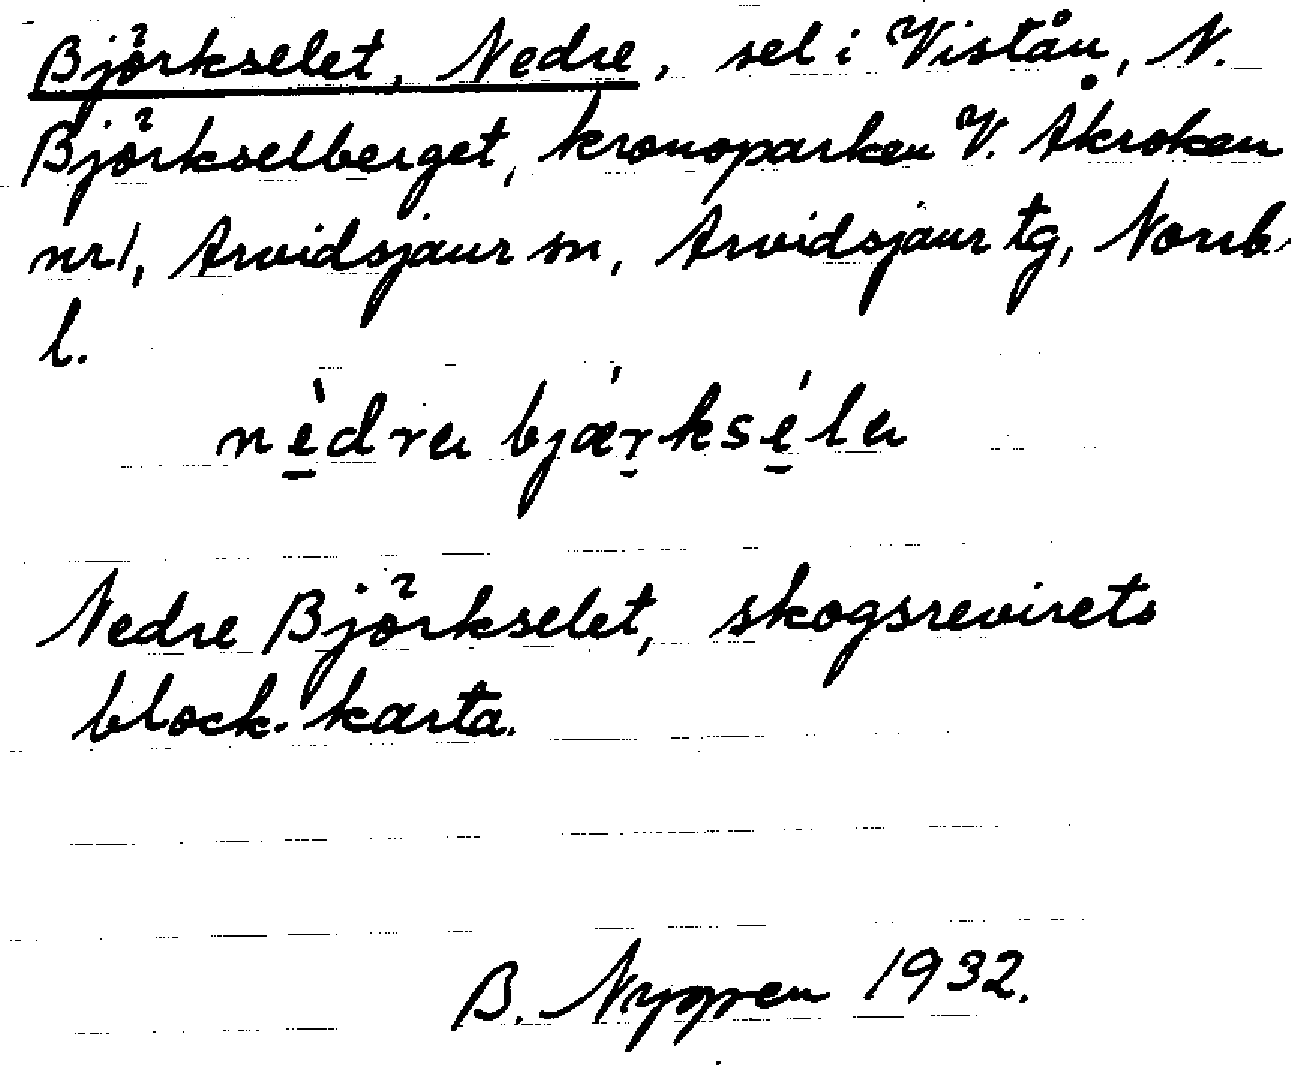 Björkselet, Nedre, sel i Vistån, N.
Björkselberget, kronoparken V. Åkroken
nr 1, Arvidsjaur sn, Arvidsjaur tg, Norrb.
l.
nèdra bjærkséla
Nedre Björkselet, skogsrevirets
block-karta.
B. Nygren 1932.